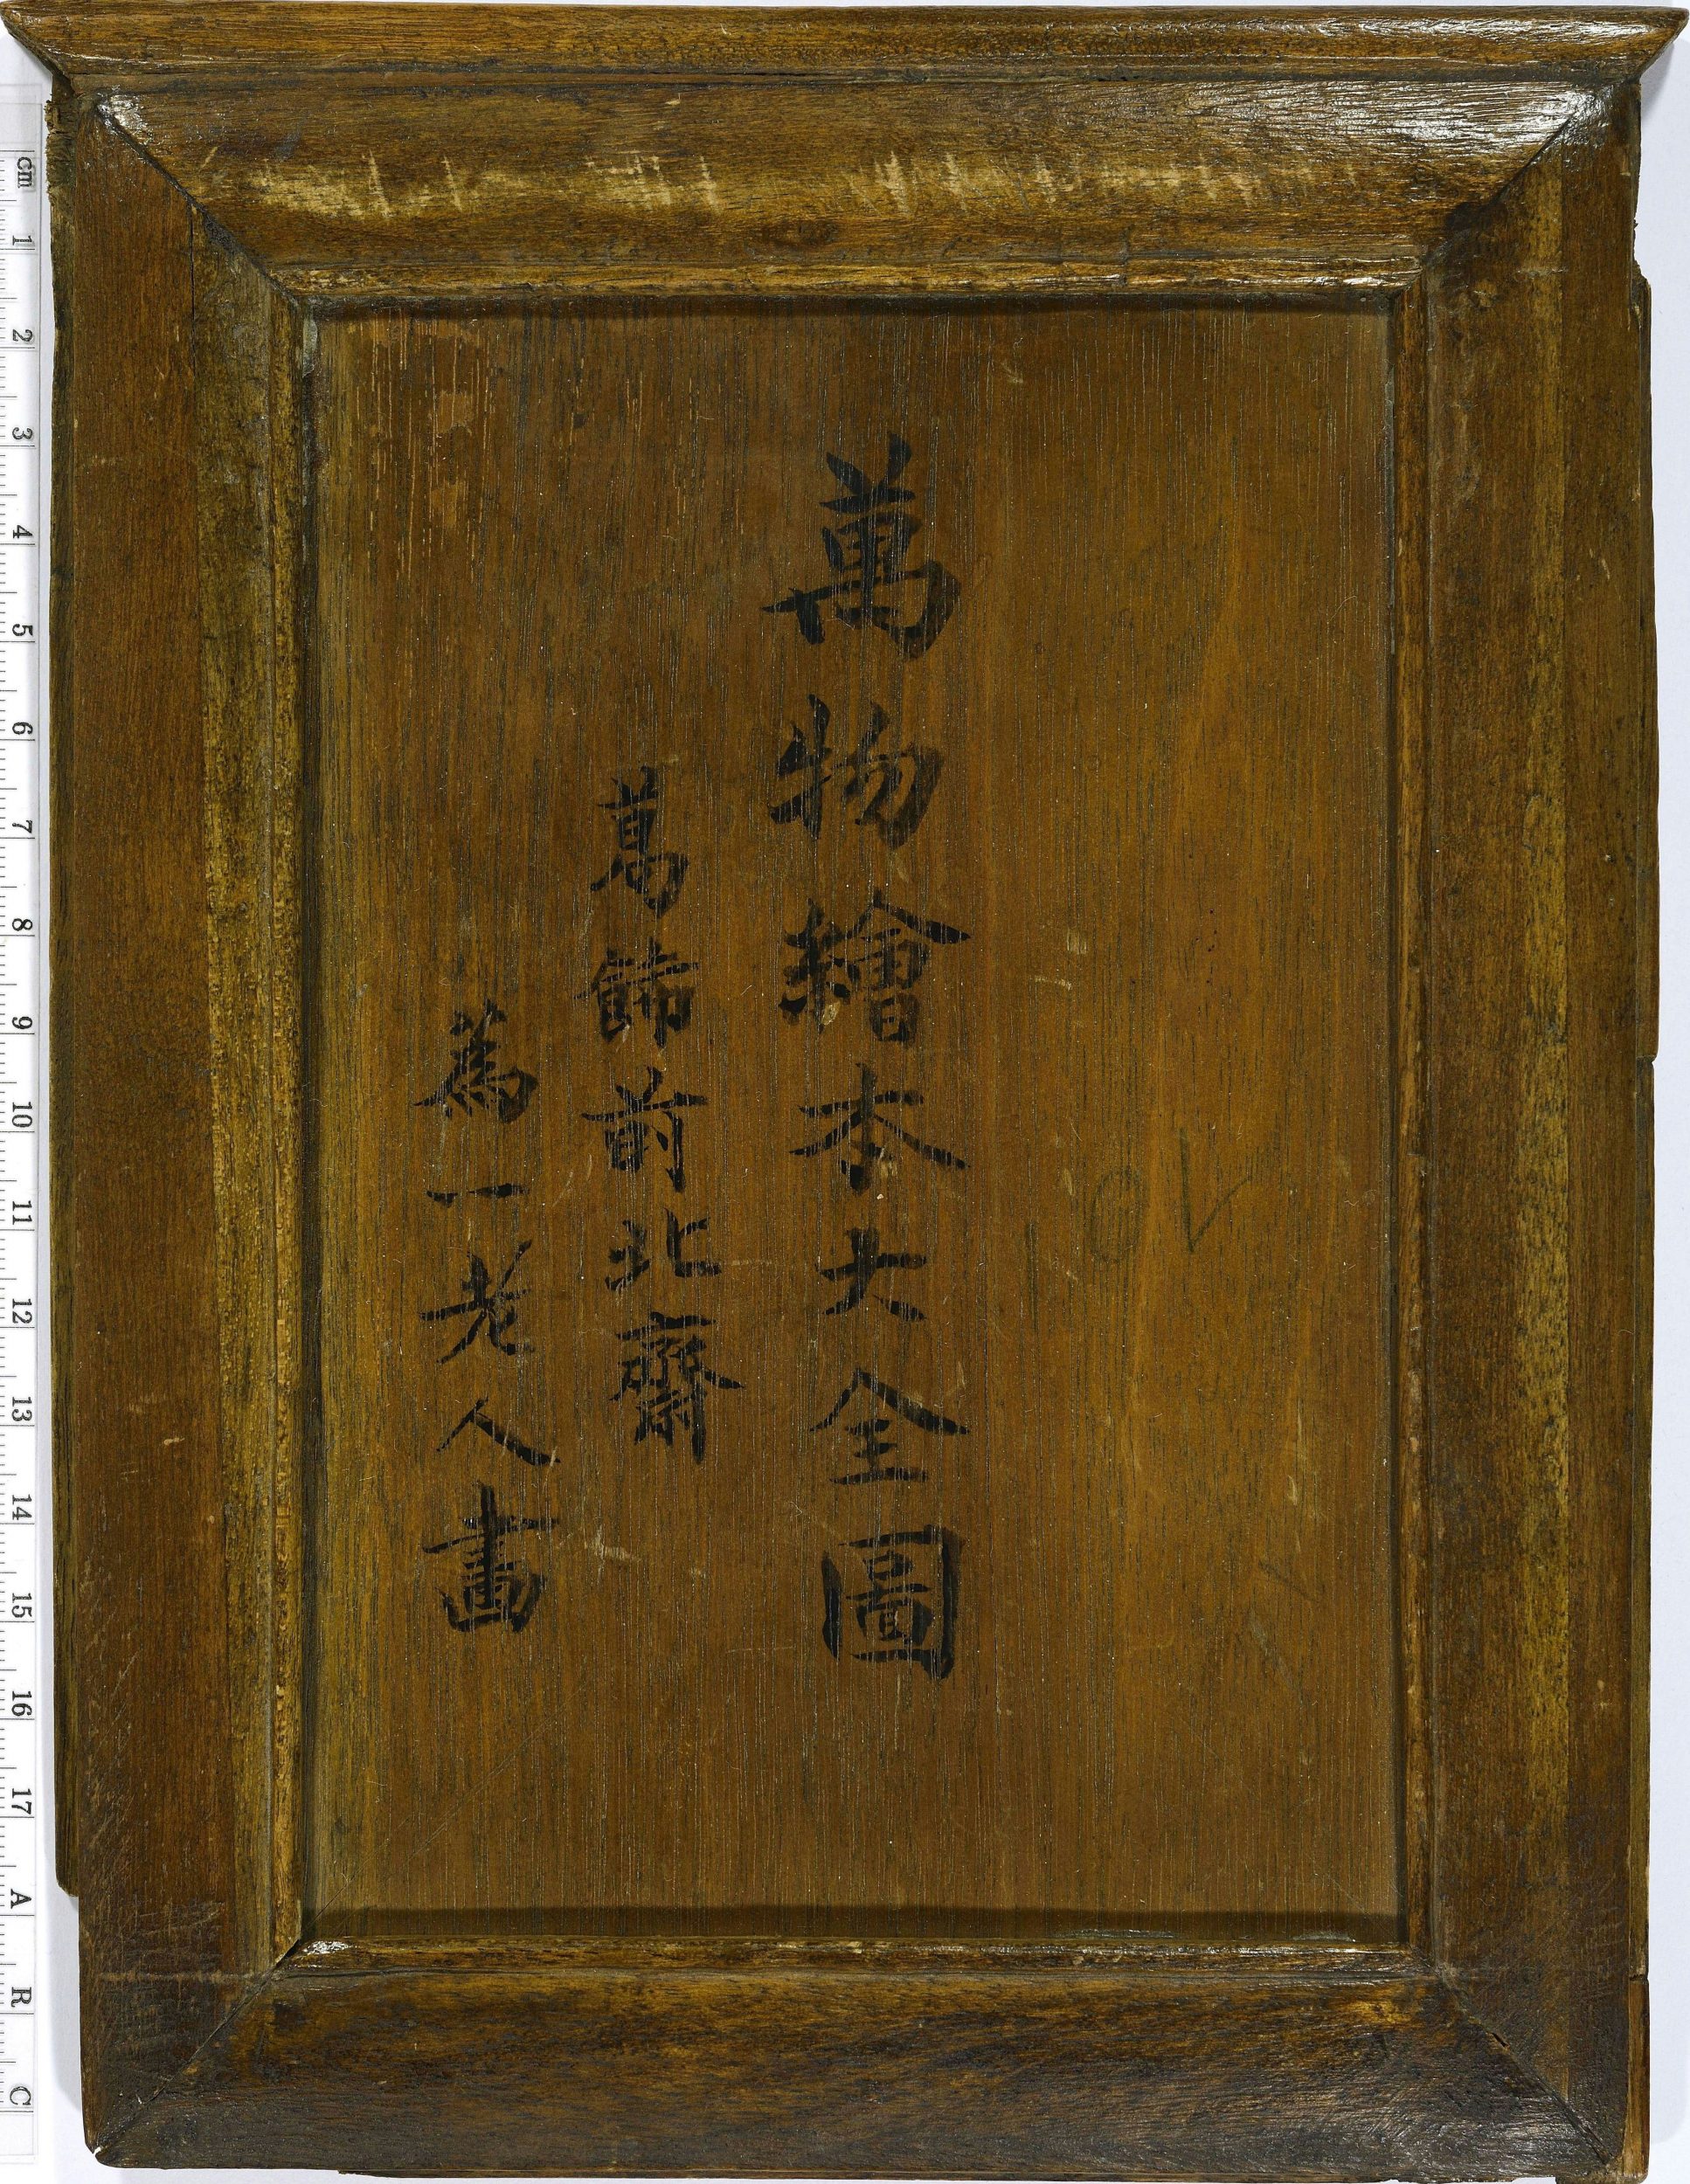 萬物繪本大全圖
葛飾前北齋
為一老人畫
cm 1 2 3 4 5 6 7 8 9 10 11 12 13 14 15 16 17 A R C